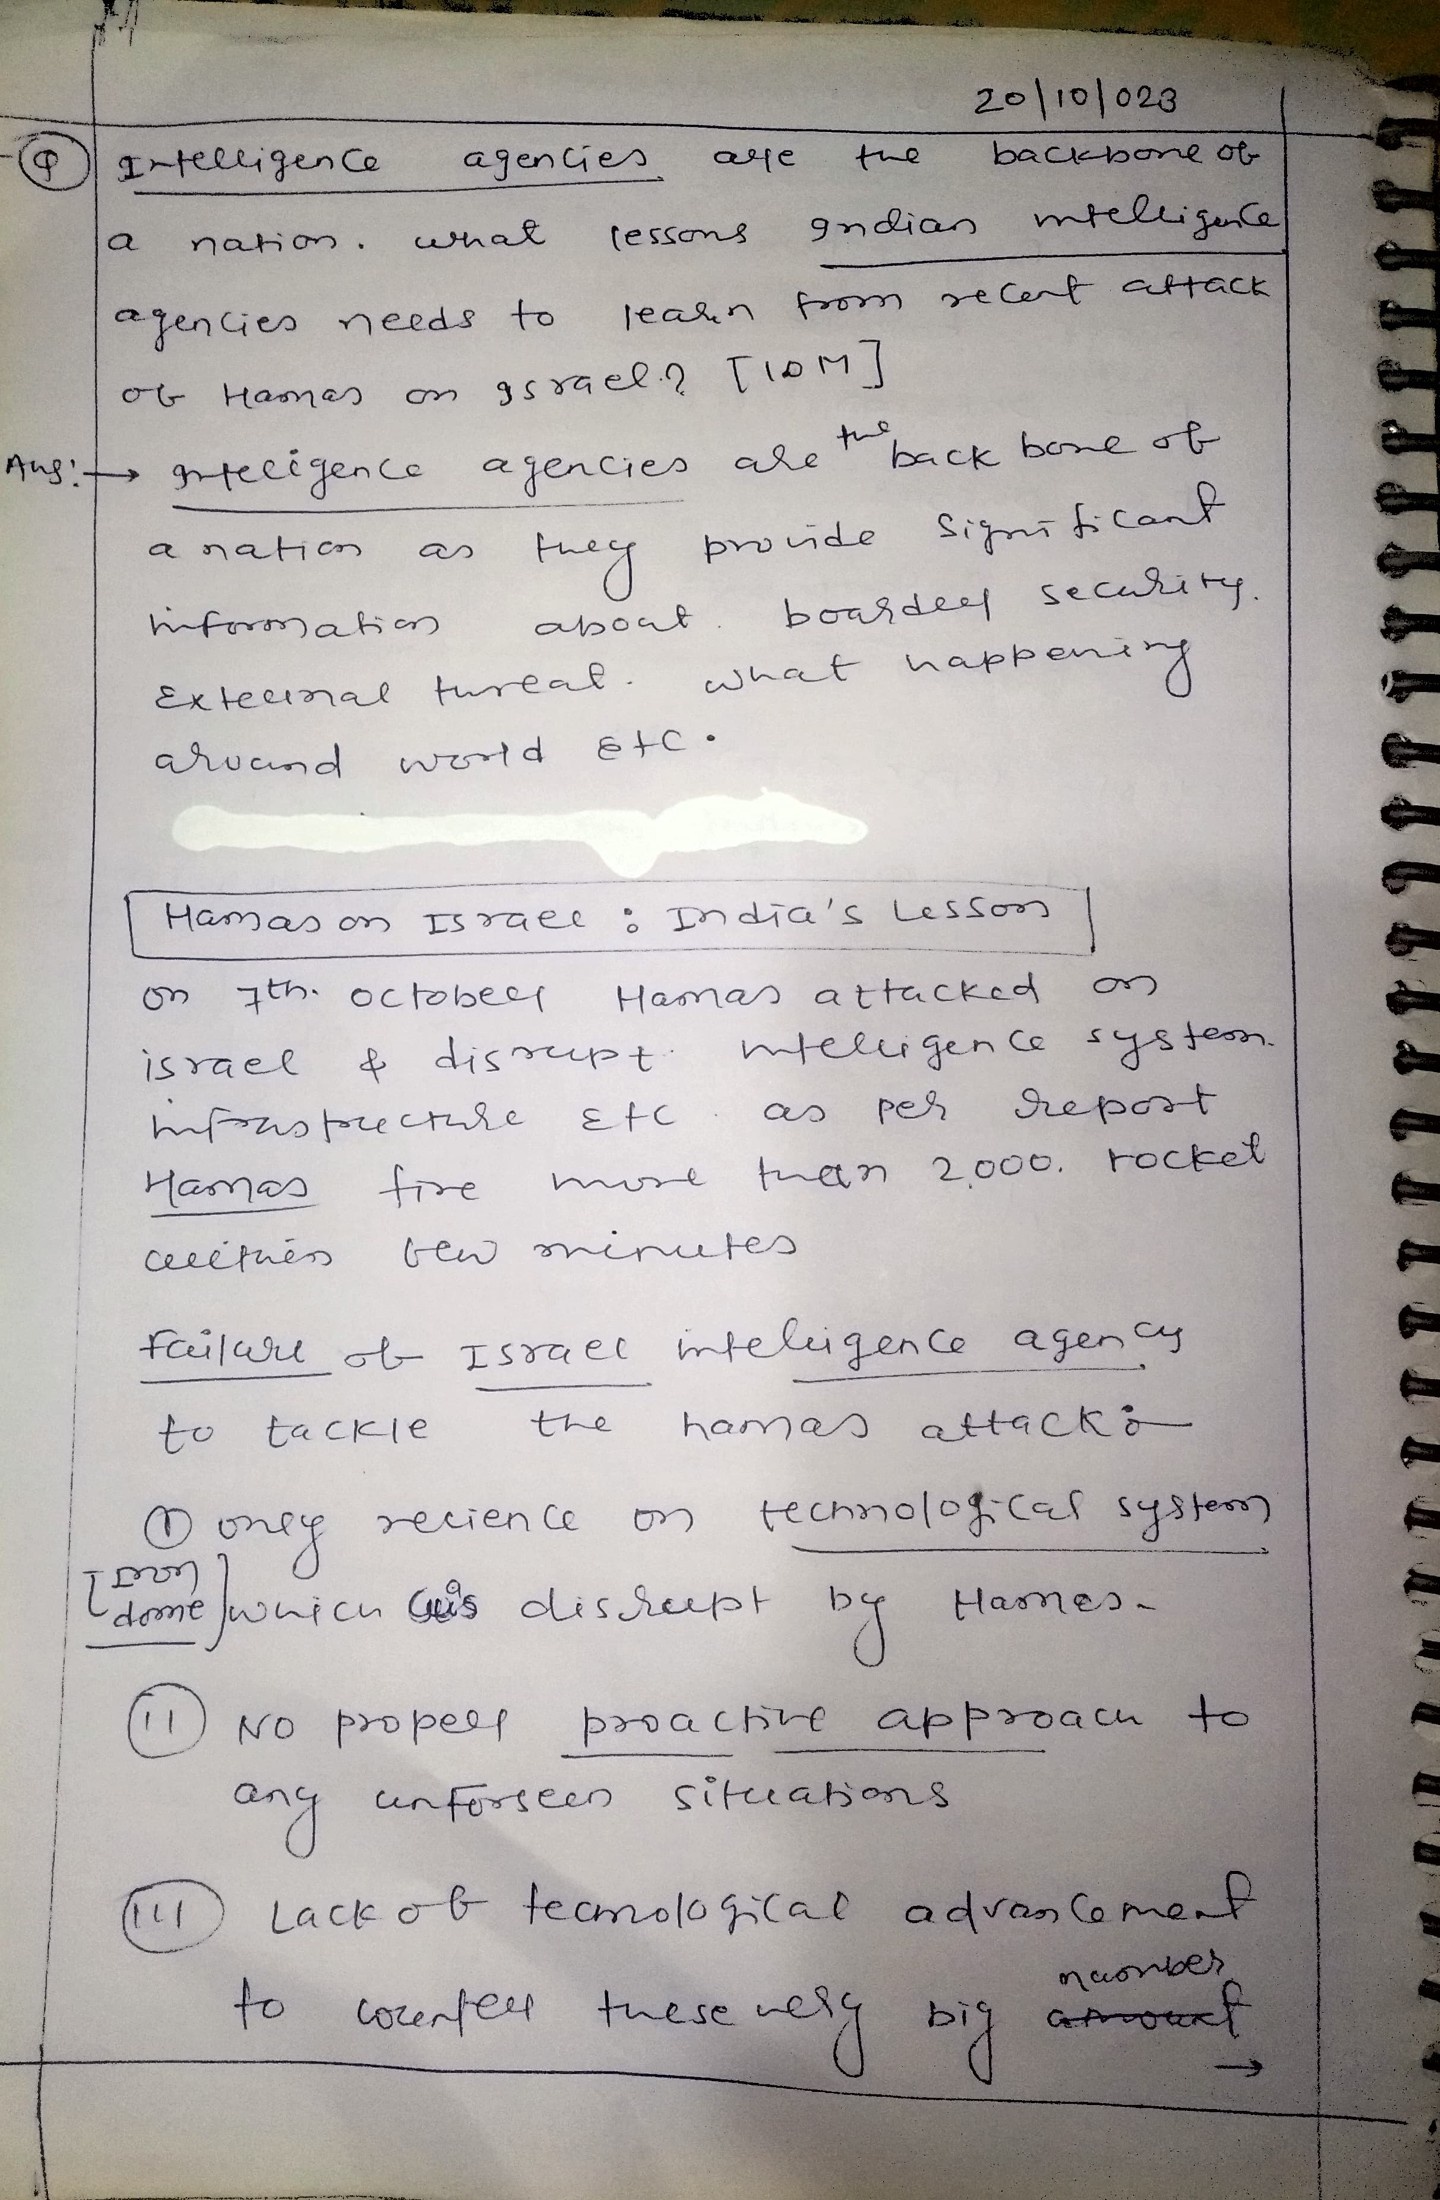 20/10/023
Q Intelligence agencies are the backbone of
a nation. what lessons Indian intelligence
agencies needs to learn from recent attack
of Hamas on Israel.? [10M]
Ans:→ Intelligence agencies are the back bone of
a nation as they provide significant
information about boarder security.
External threat. what happening
around world etc.
Hamas on Israel : India's Lesson
on 7th. october Hamas attacked on
israel & disrupt intelligence system.
infrastructure etc. as per report
Hamas fire more than 2,000. rocket
within few minutes
Failure of Israel intelligence agency
to tackle the hamas attack:-
(I) only relience on technological system
[Iron dome] which is disrupt by Hamas.
(II) No proper proactive approach to
any unforseen situations
(III) Lack of technological advancement
to counter these very big amount number
→